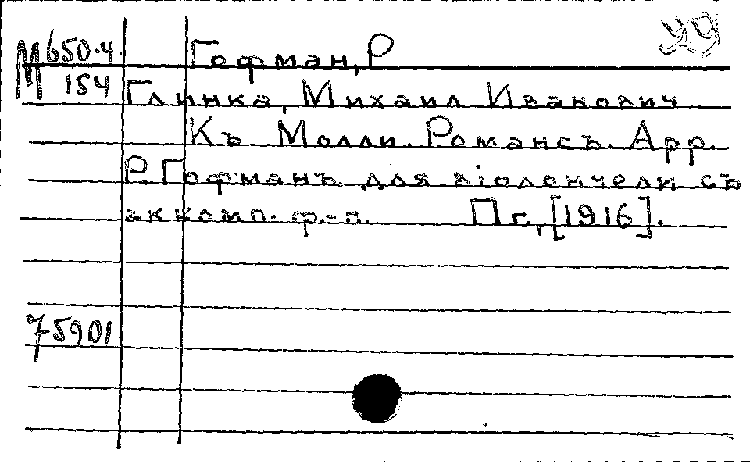 М650.4 Гофман, Р
154 Глинка, Михаил Иванович
Къ Молли. Романсъ. Арр.
Р. Гофманъ для віолончели съ
аккомп. ф.-п. Пг, [1916].
75901